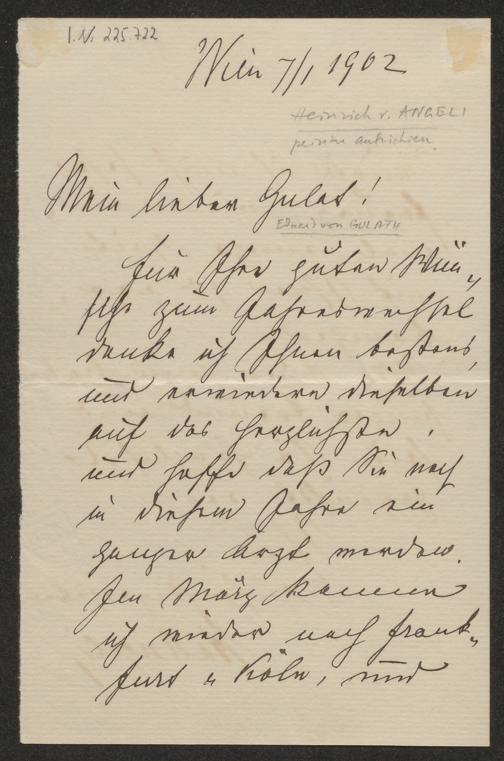 I.N. 225.722
Wien 7/1 1902
Heinrich v. ANGELI
peintre autrichien.
Mein lieber Gulat!
Eduard von GULATH
für Ihre guten Wün-
sche zum Jahreswechsel
danke ich Ihnen bestens,
und erwiedere dieselben
auf das herzlichste,
und hoffe daß Sie noch
in diesem Jahre ein
ganzer Arzt werden.
Im März komme
ich wieder nach Frank-
furt u Köln, und